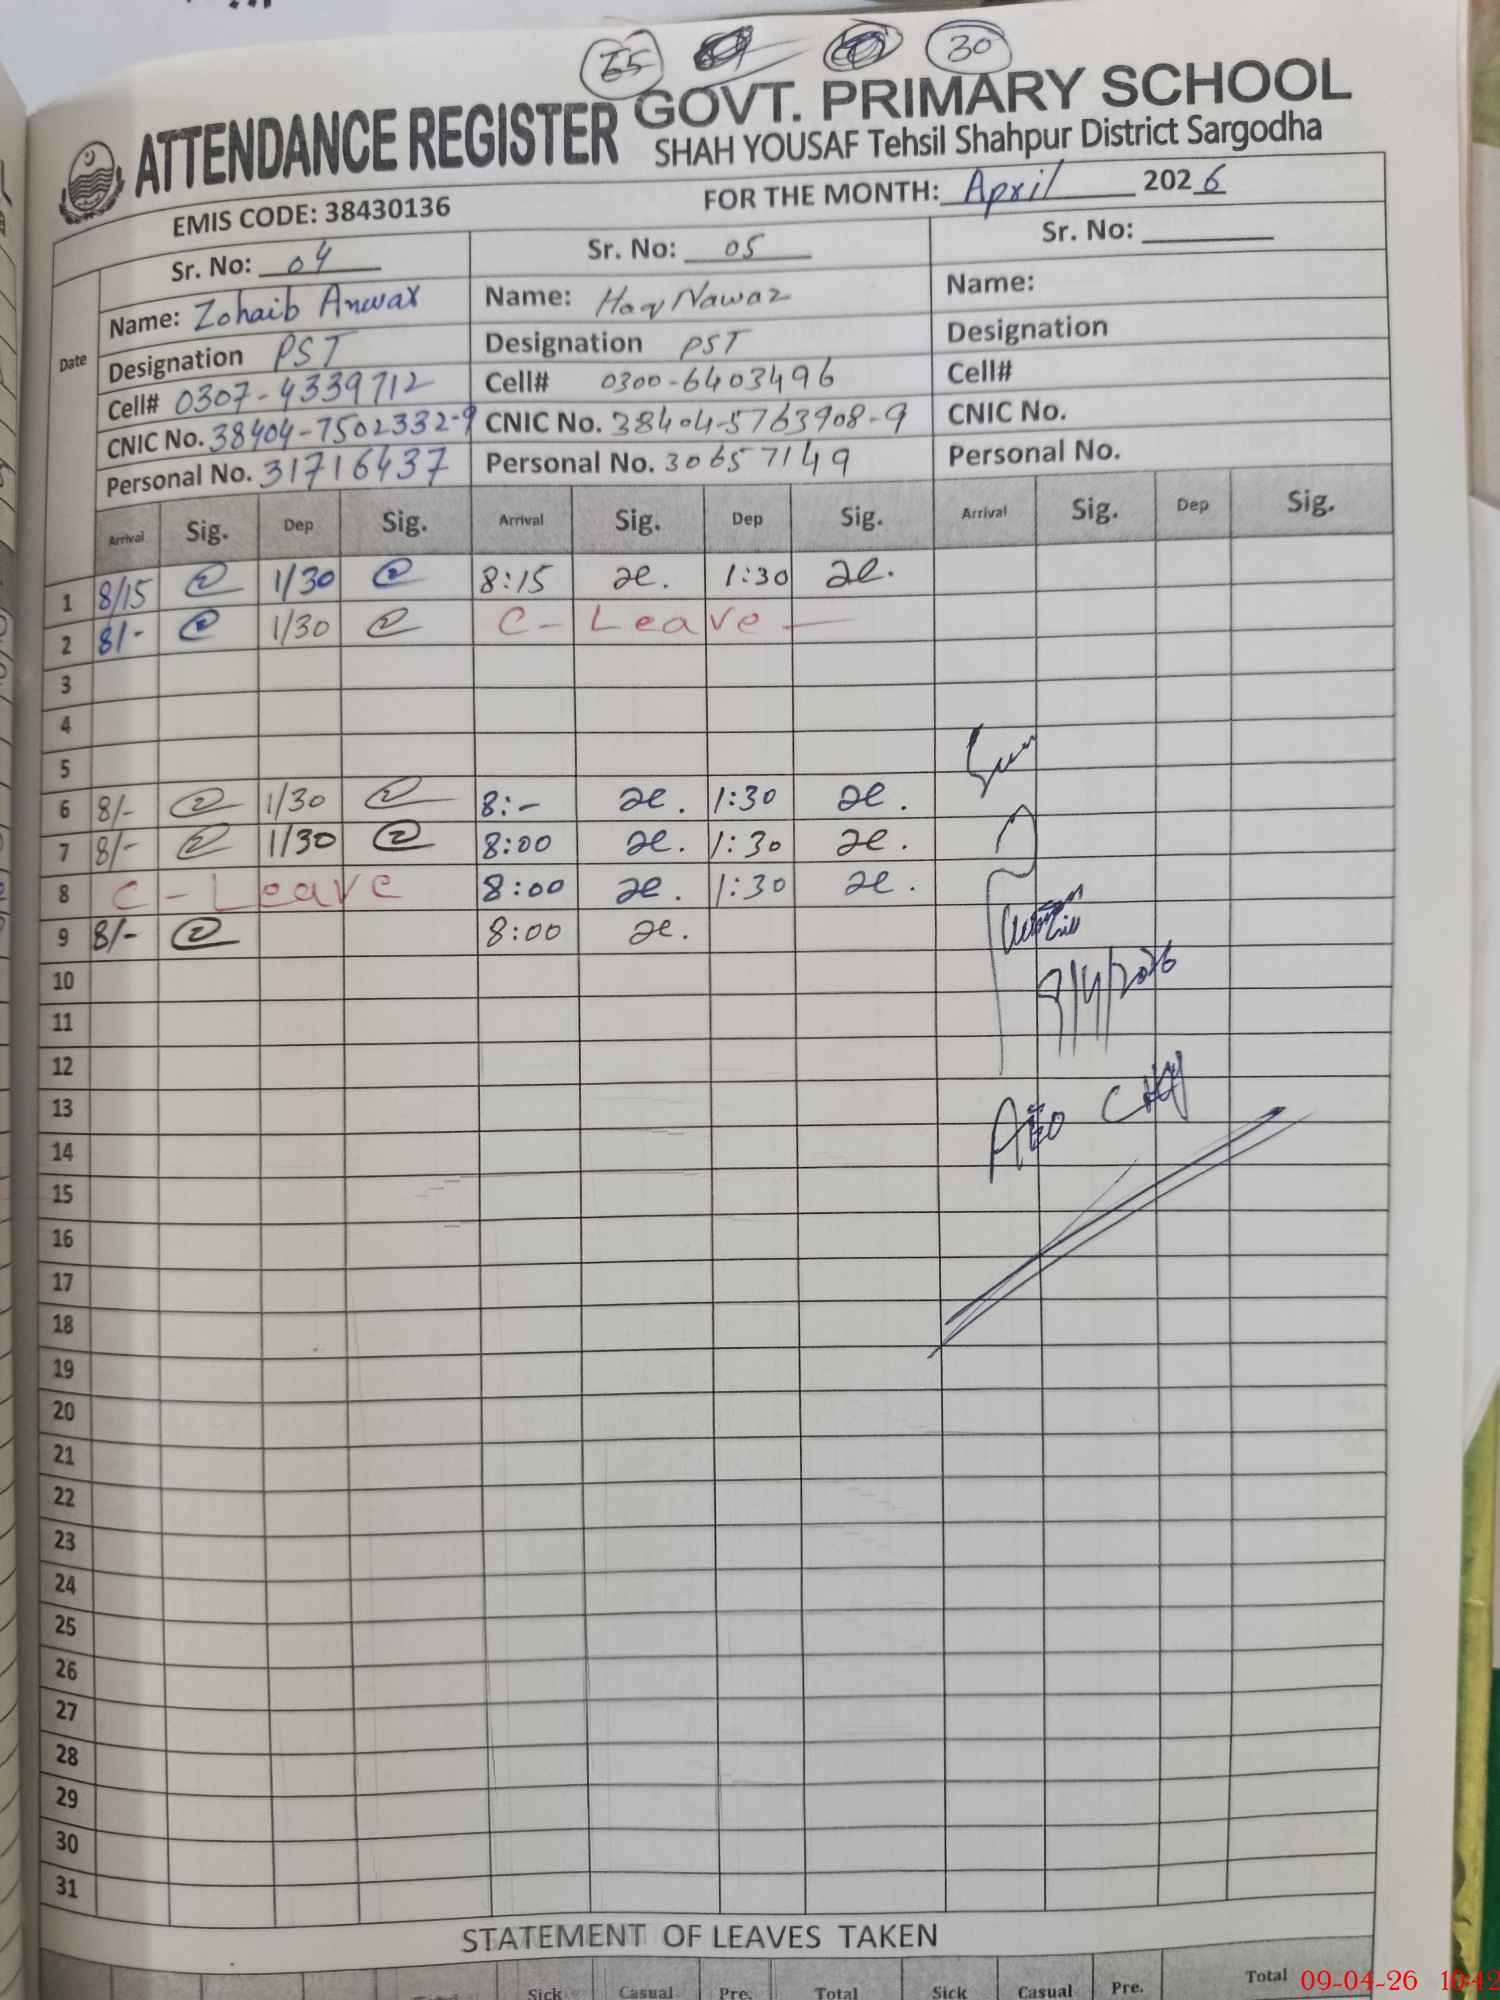 65 30
ATTENDANCE REGISTER GOVT. PRIMARY SCHOOL
SHAH YOUSAF Tehsil Shahpur District Sargodha
EMIS CODE: 38430136 FOR THE MONTH: April 2026
Sr. No: 04 Sr. No: 05 Sr. No:
Date
Name: Zohaib Anwar Name: Haq Nawaz Name:
Designation PST Designation PST Designation
Cell# 0307-4339712 Cell# 0300-6403496 Cell#
CNIC No. 38404-7502332-9 CNIC No. 38404-5763908-9 CNIC No.
Personal No. 31716437 Personal No. 30657149 Personal No.
Arrival Sig. Dep Sig. Arrival Sig. Dep Sig. Arrival Sig. Dep Sig.
1 8/15 1/30 8:15 1:30
2 8/- 1/30 C- Leave
3
4
5
6 8/- 1/30 8:- 1:30
7 8/- 1/30 8:00 1:30
8 C-Leave 8:00 1:30
9 8/- 8:00
9/4/2026
10
11
12
13
14
15
16
17
18
19
20
21
22
23
24
25
26
27
28
29
30
31
STATEMENT OF LEAVES TAKEN
Sick Casual Pre. Total Sick Casual Pre. Total
09-04-26 10:42